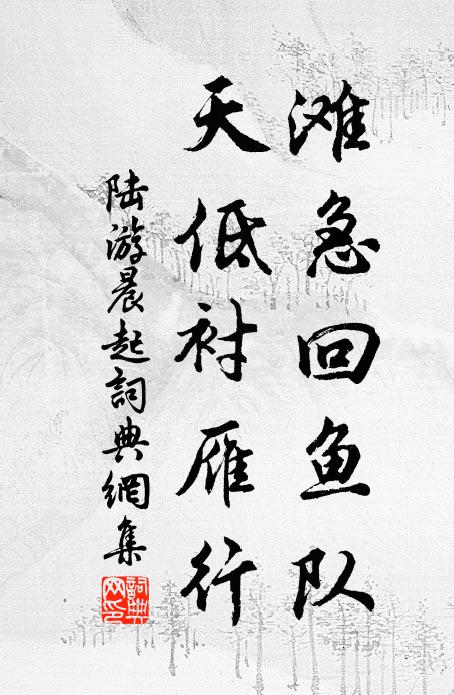 滩急回鱼队
天低衬雁行
陆游晨起詞典網集
詞典网印